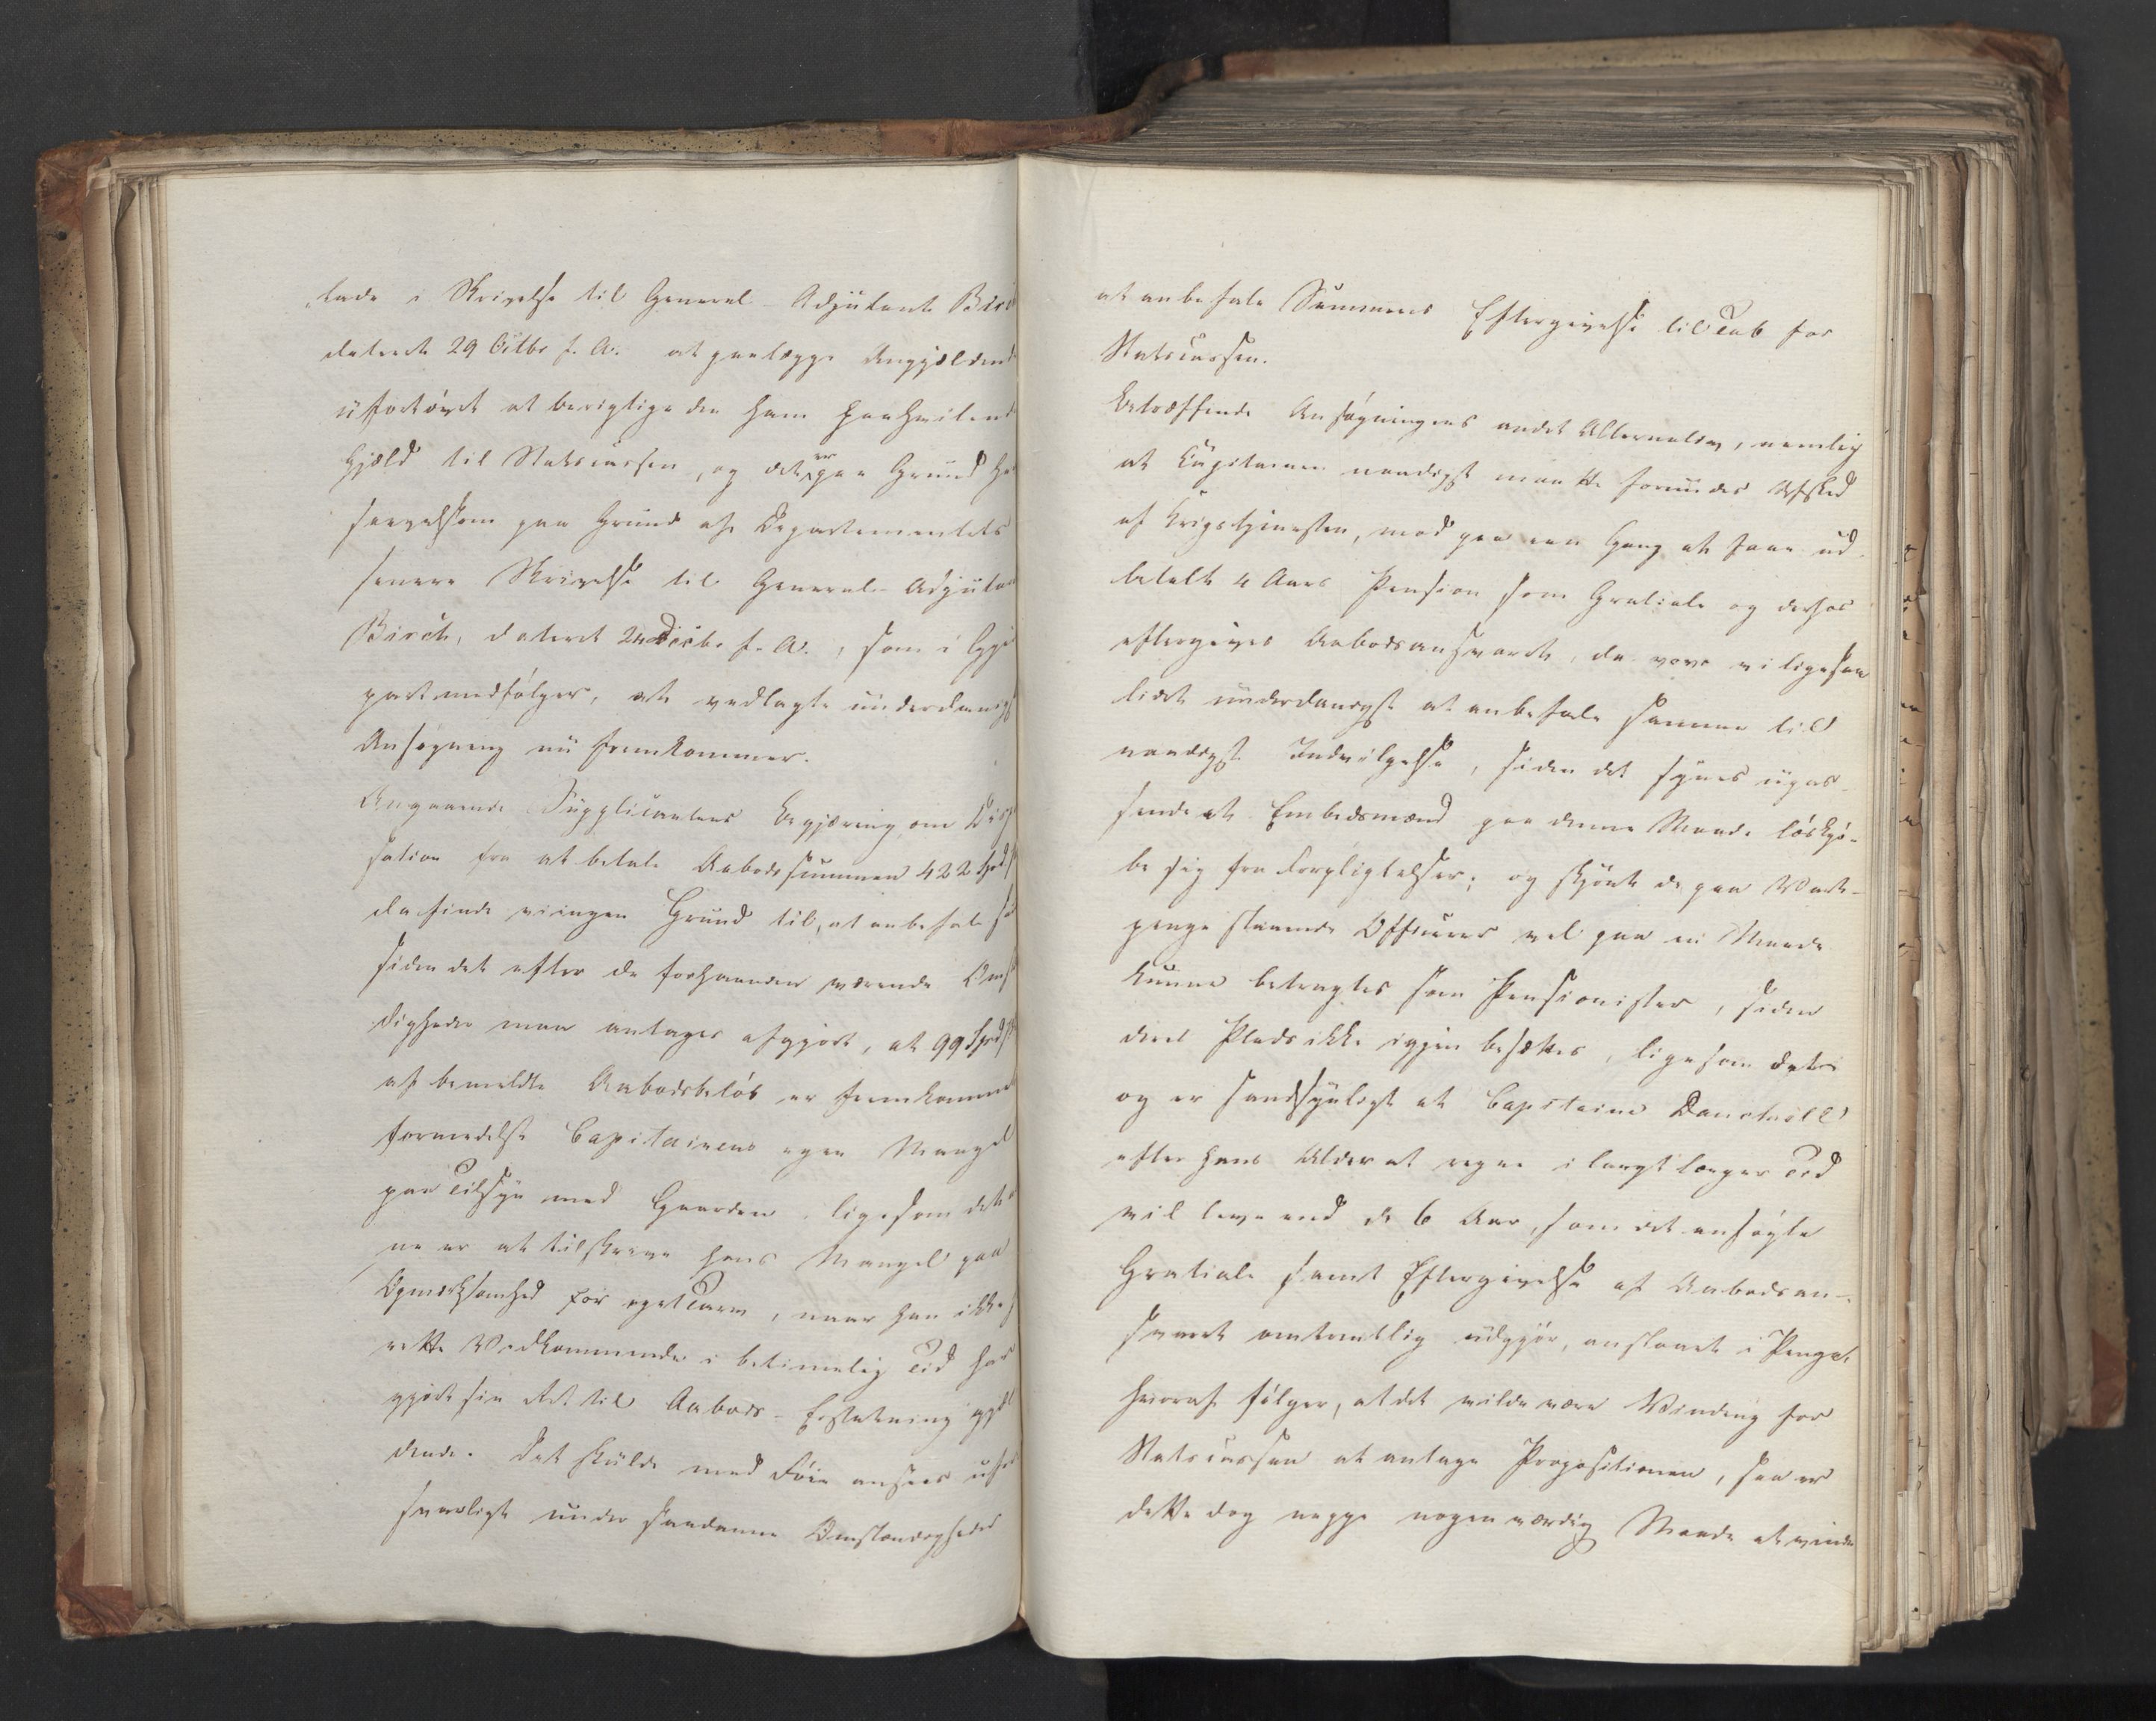 lade i Skrivelse til General-Adjutant Birch
dateret 29 Octbr f. A. at paalægge Angjeldende
ufortøvet at berigtige den ham paahvilende
Gjæld til Statscassen, og det er paa Grund
saavelsom paa Grund af Departementets
senere Skrivelse til General-Adjutant
Birch, dateret 24 Decbr f. A., som i Gjen-
part medfølger, at vedlagte underdanigst
Ansøgning nu fremkommer.
Angaaende Supplicantens Begjæring om Dis-
sation fra at betale Aabodssummen 422 Spd
da finde vi ingen Grund til, at anbefale
siden det efter de forhaanden værende Omst
digheder maa antages afgjort, at 99 Spd
af bemeldte Aabodsbeløb er fremkommen
formedelst Capitainens egen Mangel
paa Tilsyn med Gaarden, ligesom det
ne er at tilskrive hans Mangel paa
Opmærksomhed for eget Tarv, naar han ikke
rette Vedkommende i betimelig Tid har
gjort sin Ret til Aabods-Erstatning gjel
dende. Det skulde med Føie ansees ufor
svarligt under saadanne Omstændigheder
at anbefale Summens Eftergivelse til Tab for
Statscassen.
Betræffende Ansøgningens andet Alternativ, nemlig
at Capitainen naadigst maatte forundes Afsked
af Krigstjenesten, mod paa een Gang at faae ud-
betalt 4 Aars Pension som Gratiale og derhos
eftergives Aabodsansvaret, da vove vi ligesaa
lidet underdanigst at anbefale samme til
naadigst Indvilgelse, siden det synes upas-
sende at Embedsmænd paa denne Maade løskjø-
be sig fra Forpligtelser; og skjönt de paa Vart-
penge staaende Officerer vel paa en Maade
kunne betragtes som Pensionister, siden
deres Plads ikke igjen besættes, ligesom det
og er sandsynligt at Capitaine
efter hans Alder at regne i langt længer Tid
vil leve end de 6 Aar, som det ansøgte
Gratiale samt Eftergivelse af Aabodsan-
svaret omtrentlig udgjør, anslaaet i Penge,
hvoraf følger, at det vilde være Vinding for
Statscassen at antage Propositionen, saa er
dette dog neppe nogen værdig Maade at vinde